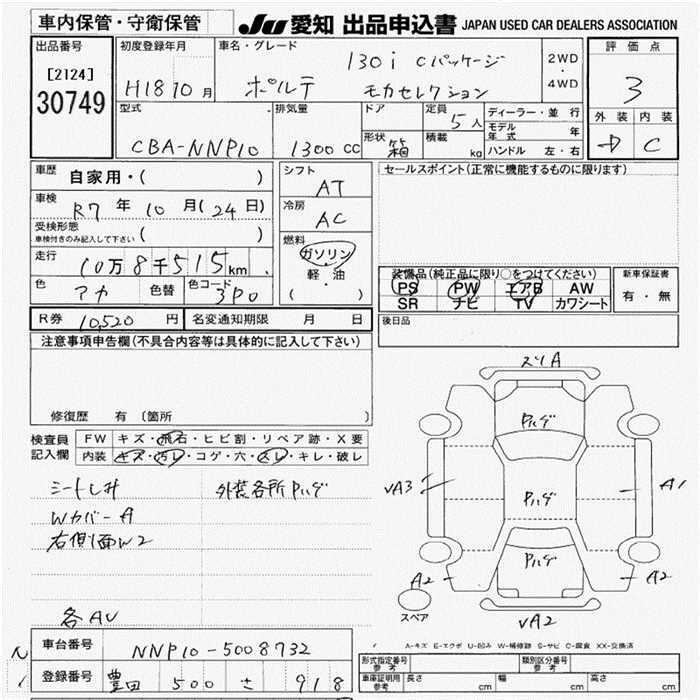 車内保管・守衛保管
JU 愛知 出品申込書 JAPAN USED CAR DEALERS ASSOCIATION
出品番号
[2124]
30749
初度登録年月
H18 10 月
車名・グレード
130i Cパッケージ
ポルテ モカセレクション
2WD
・
4WD
評価点
3
外装 内装
D C
型式
CBA-NNP10
排気量
1300 CC
ドア
形状 箱
定員
5 人
積載
kg
ディーラー・並行
モデル年式 年
ハンドル 左・右
車歴
自家用・( )
車検
R7 年 10 月(24日)
受検形態
車検付きのみ記入して下さい ( )
走行
10万8千515km
色
アカ
色替
色コード
3P0
シフト
AT
冷房
AC
燃料
ガソリン・
軽・油
( )
セールスポイント(正常に機能するものに限ります)
装備品(純正品に限り○をつけてください)
PS PW エアB AW
SR ナビ TV カワシート
新車保証書
有・無
後日品
R券 10,520 円
名変通知期限 月 日
注意事項申告欄(不具合内容等は具体的に記入して下さい)
修復歴 有〔箇所
検査員記入欄
FW キズ・飛石・ヒビ割・リペア跡・X要
内装 キズ・汚レ・コゲ・穴・スレ・キレ・破レ
シートし升 外装各所Pハゲ
Wカバー A
右側面W2
各AU
ズリA
Pハゲ
UA3
Pハゲ
A1
Pハゲ
A2
A2
UA2
スペア
A-キズ E-エクボ U-凹み W-補修跡 S-サビ C-腐食 XX-交換済
車台番号
NNP10-5008732
登録番号
豊田 500 さ 918
形式指定番号
参考
類別区分番号
参考
車庫証明用
参考
長さ cm 幅 cm 高さ cm